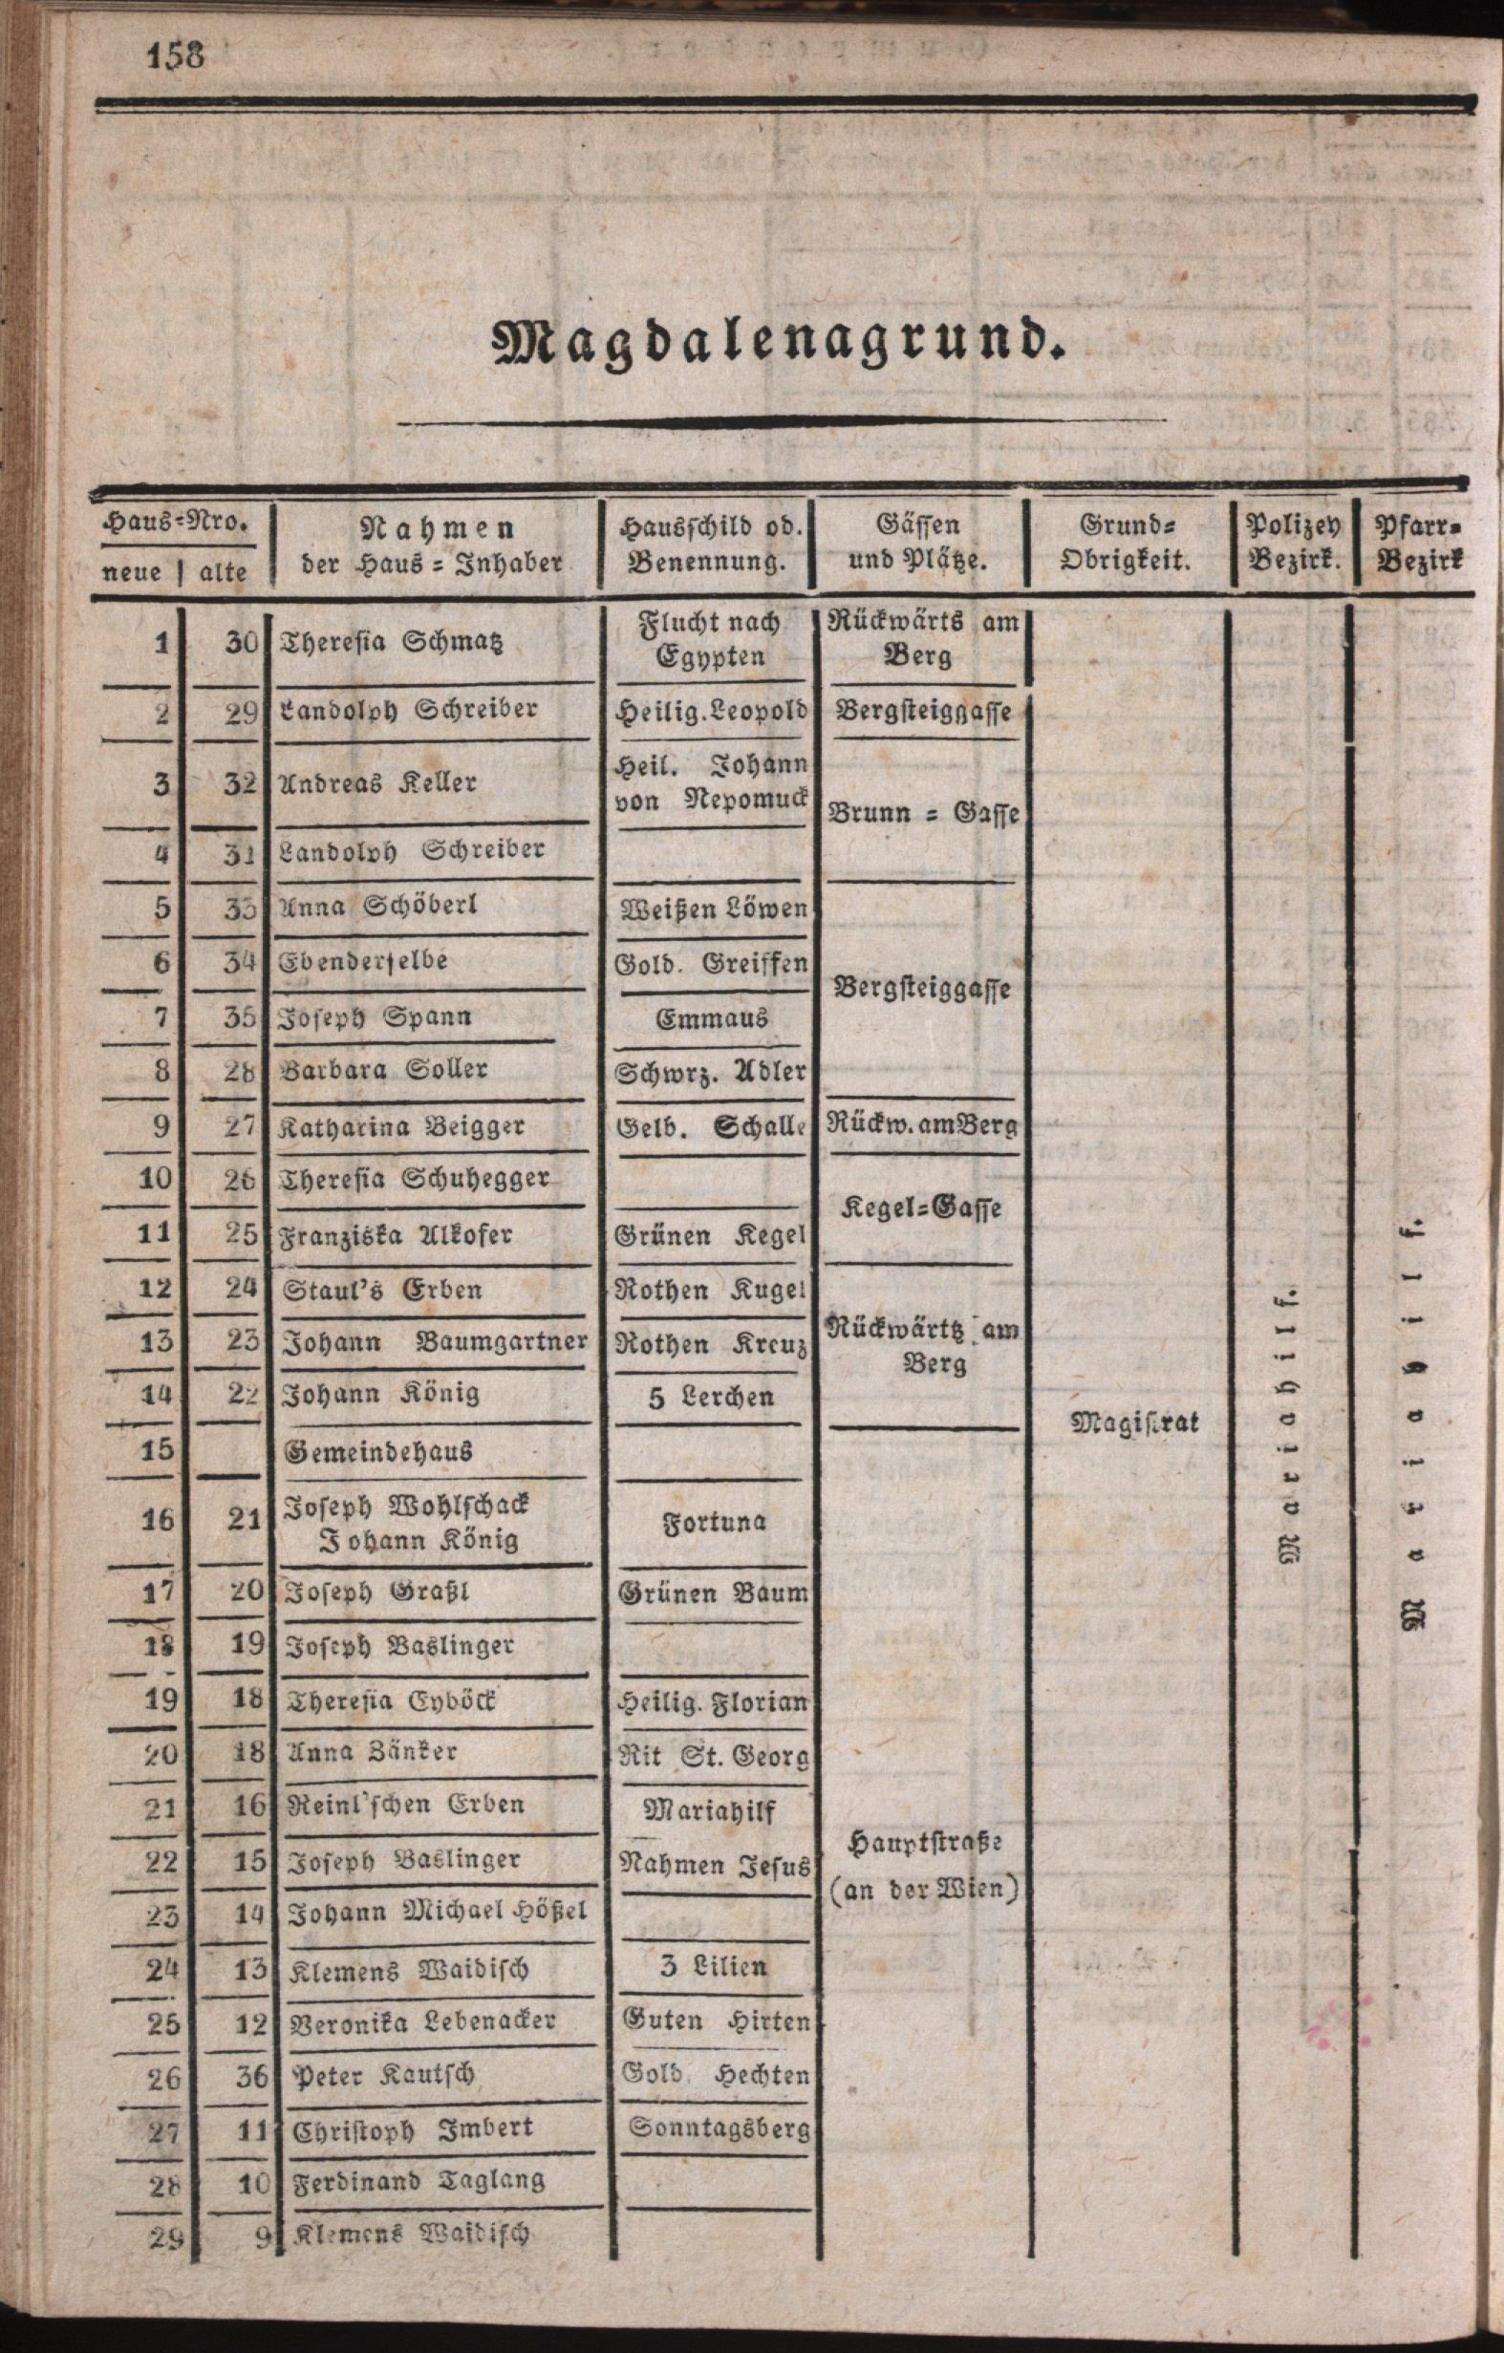 158
Magdalenagrund.
Haus=Nro. Nahmen Hausschild od. Gässen Grund= Polizey Pfarr=
neue alte der Haus=Inhaber Benennung. und Plätze. Obrigkeit. Bezirk. Bezirk
1 30 Theresia Schmatz Flucht nach Egypten Rückwärts am Berg
2 29 Landolph Schreiber Heilig. Leopold Bergsteiggasse
3 32 Andreas Keller Heil. Johann von Nepomuck Brunn=Gasse
4 31 Landolph Schreiber
5 33 Anna Schöberl Weißen Löwen
6 34 Ebenderselbe Gold. Greiffen Bergsteiggasse
7 35 Joseph Spann Emmaus
8 28 Barbara Soller Schwrz. Adler
9 27 Katharina Beigger Gelb. Schalle Rückw. am Berg
10 26 Theresia Schuhegger Kegel=Gasse
11 25 Franziska Alkofer Grünen Kegel
12 24 Staul's Erben Rothen Kugel
13 23 Johann Baumgartner Rothen Kreuz Rückwärtz am Berg
14 22 Johann König 5 Lerchen
Magistrat
Mariahilf.
Mariahilf.
15 Gemeindehaus
16 21 Joseph Wohlschack Johann König Fortuna
17 20 Joseph Graßl Grünen Baum
18 19 Joseph Baslinger
19 18 Theresia Eyböck Heilig. Florian
20 18 Anna Zänker Rit St. Georg
21 16 Reinl'schen Erben Mariahilf
22 15 Joseph Baslinger Nahmen Jesus Hauptstraße (an der Wien)
23 14 Johann Michael Hößel
24 13 Klemens Waidisch 3 Lilien
25 12 Veronika Lebenacker Guten Hirten
26 36 Peter Kautsch Gold. Hechten
27 11 Christoph Imbert Sonntagsberg
28 10 Ferdinand Taglang
29 9 Klemens Waidisch